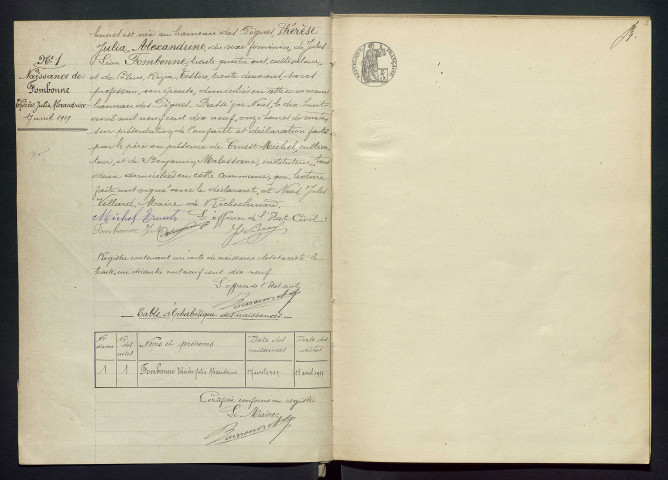 N° 1
Naissance de
Fombonne
Thérèse Julia Alexandrine
17 avril 1919
est née au hameau des Pègues, Thérèse
Julia Alexandrine, de sexe féminin, de Jules
Léon Fombonne, trente quatre ans, cultivateur,
et de trente deux ans, sans
profession, son épouse, domiciliés en cette commune
hameau des Pègues. Dressé par Nous, le dix huit
avril mil neuf cent dix neuf, onze heures du matin
sur présentation de l'enfant et déclaration faite
par le père en présence de Ernest Michel, cultiva-
teur, et de Benjamin instituteur, tous
deux domiciliés en cette commune, qui, lecture
faite ont signé avec le déclarant, et Nous, Jules
Maire de
Michel Ernest L'officier de l'État Civil :
Fombonne J
Registre contenant un acte de naissance clos et arrêté le
trente un décembre mil neuf cent dix neuf
L'officier de l'état civil
Table alphabétique des naissances
N° d'ordre N° des actes Noms et prénoms Date des naissances Date des actes
1 1 Fombonne Thérèse Julia Alexandrine 17 avril 1919 18 avril 1919
Certifiée conforme au registre
Le Maire
RÉPUBLIQUE FRANÇAISE